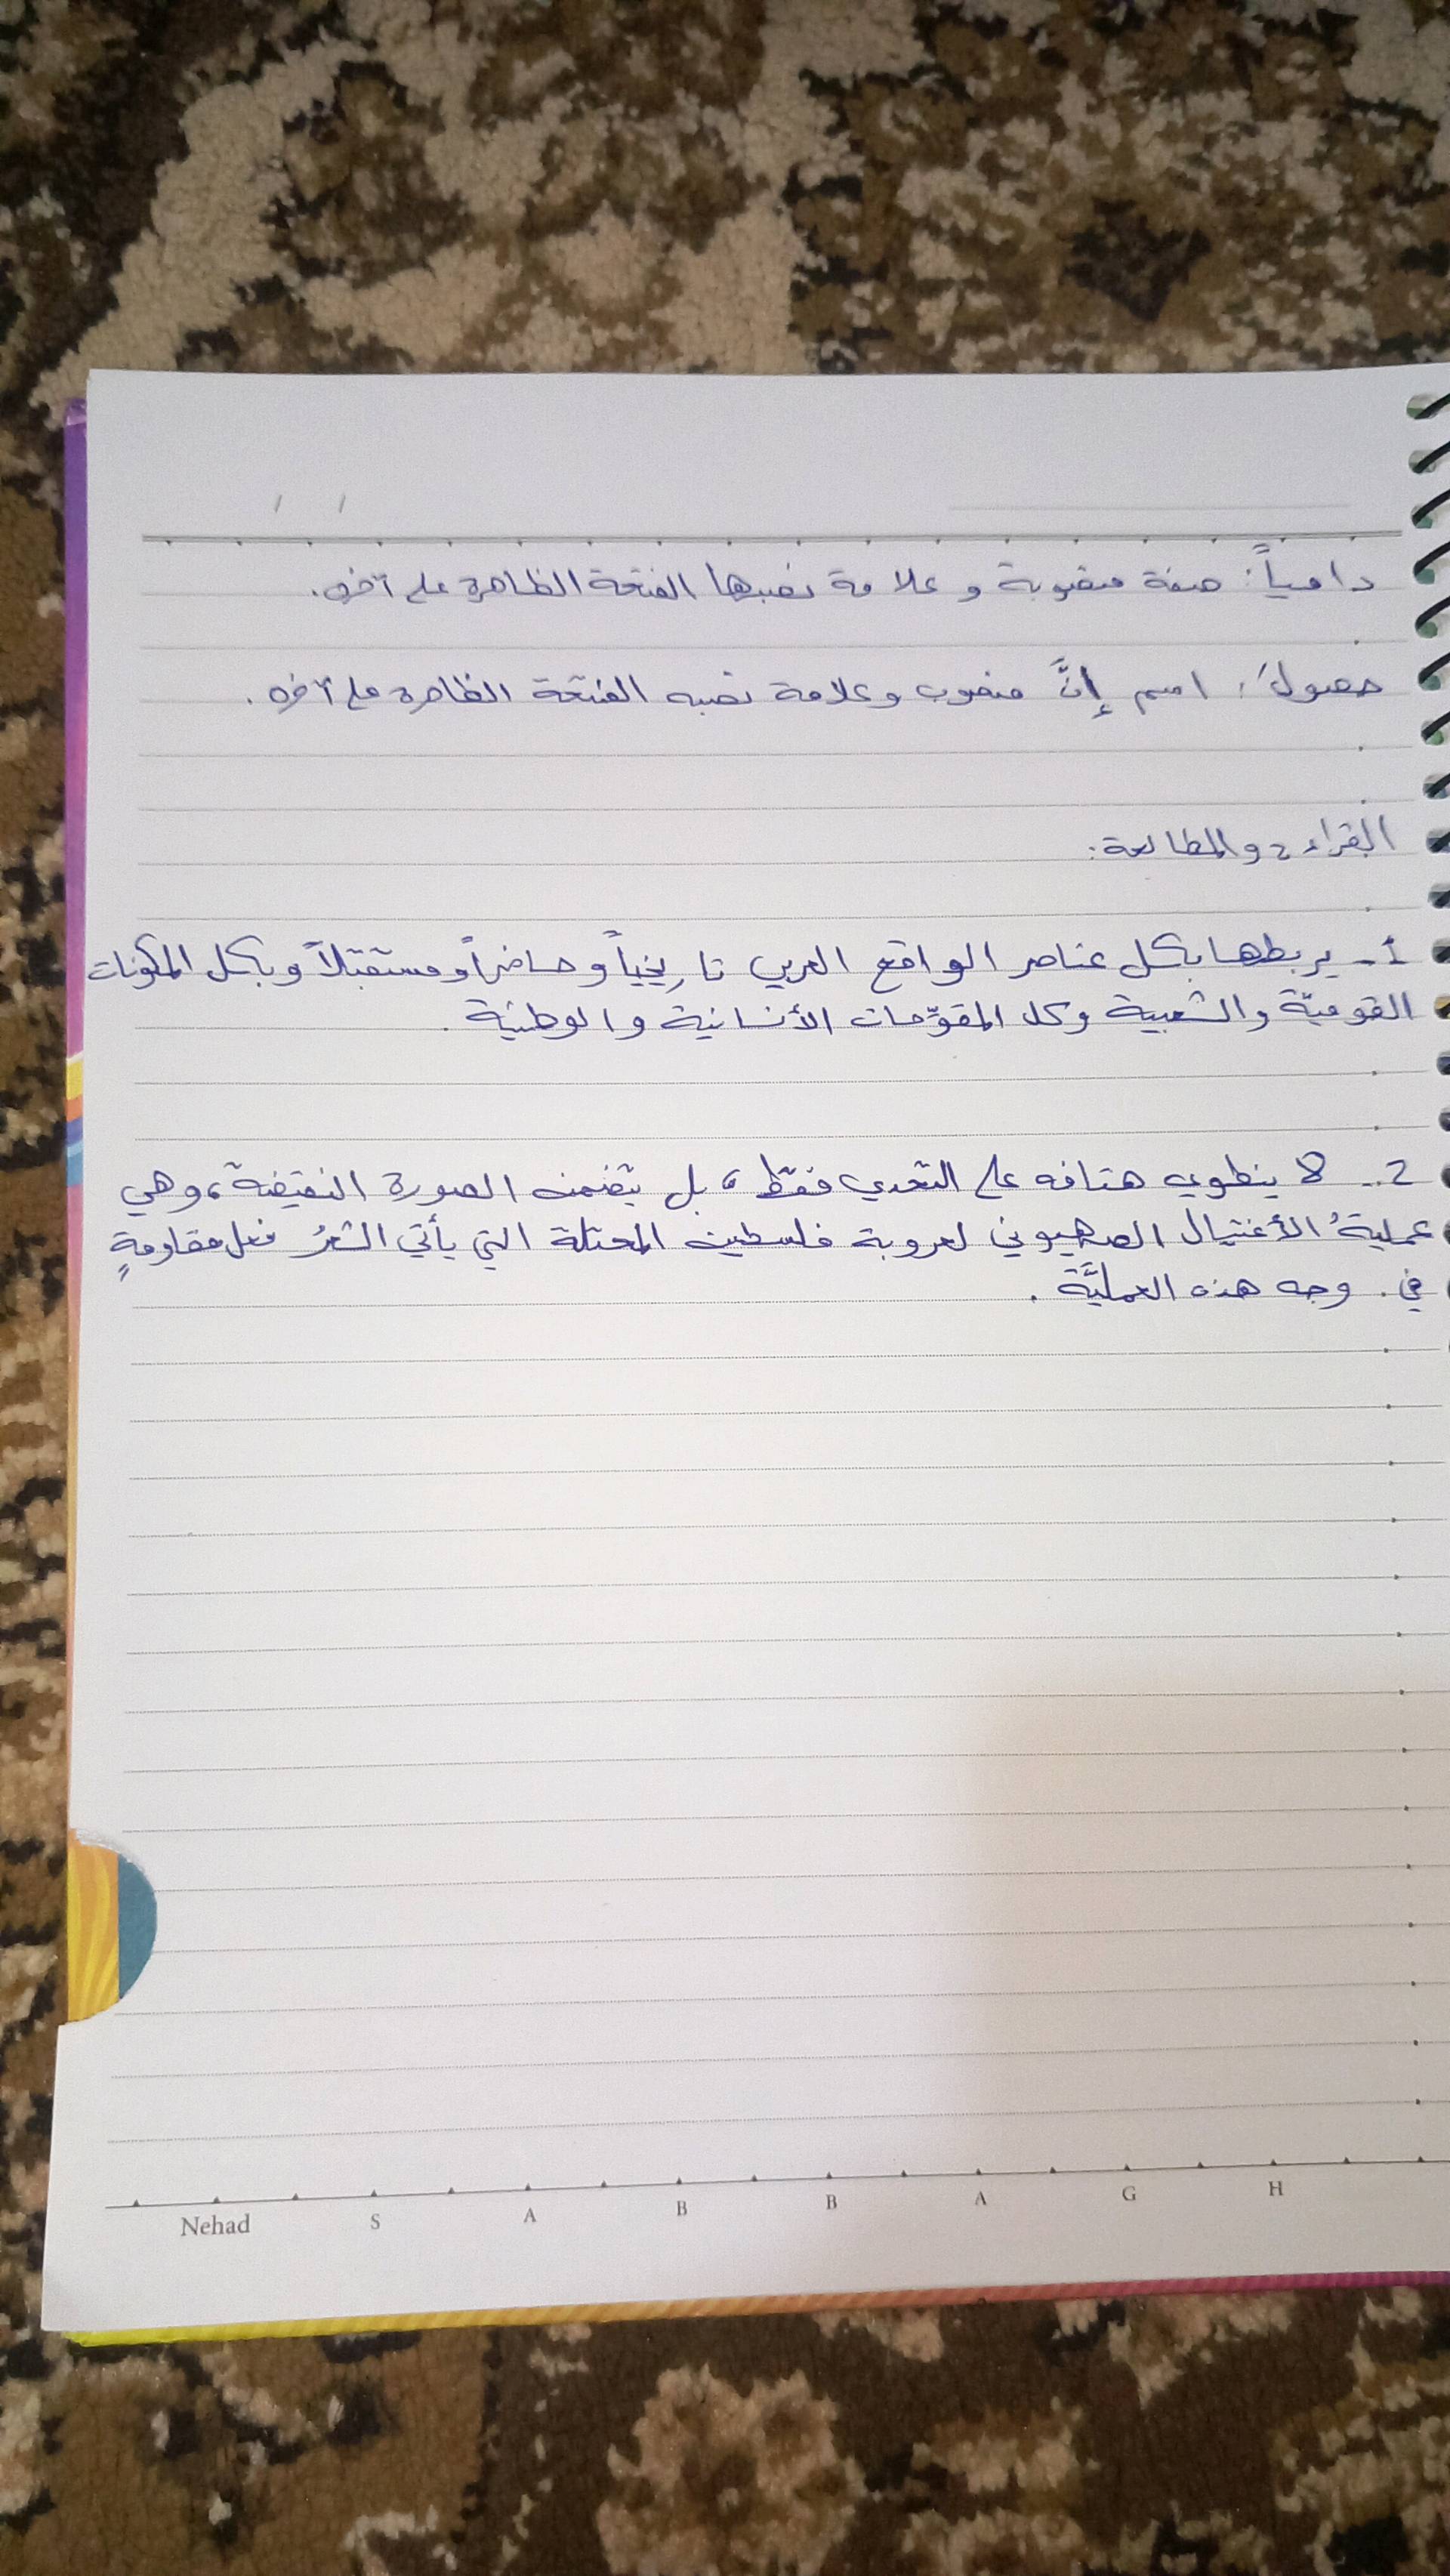 دامياً: صفة منصوبة و علامة نصبها الفتحة الظاهرة على آخره.
حصولَ: اسم إنَّ منصوب وعلامة نصبه الفتحة الظاهرة على آخره.
القراءة والمطالعة:
1- يربطها بكل عناصر الواقع العربي تاريخياً وحاضراً ومستقبلاً وبكل المكونات
القوميّة والشعبية وكل المقوِّمات الأنسانية والوطنية.
2- لا ينطوي هتافه على التحدي فقط، بل يتضمنه الصورة النقيضة، وهي
عمليةُ الأغتيال الصهيوني لعروبة فلسطين المحتلة التي يأتي الشعرُ فعل مقاومةٍ
في وجه هذه العمليَّة.
Nehad S A B B A G H